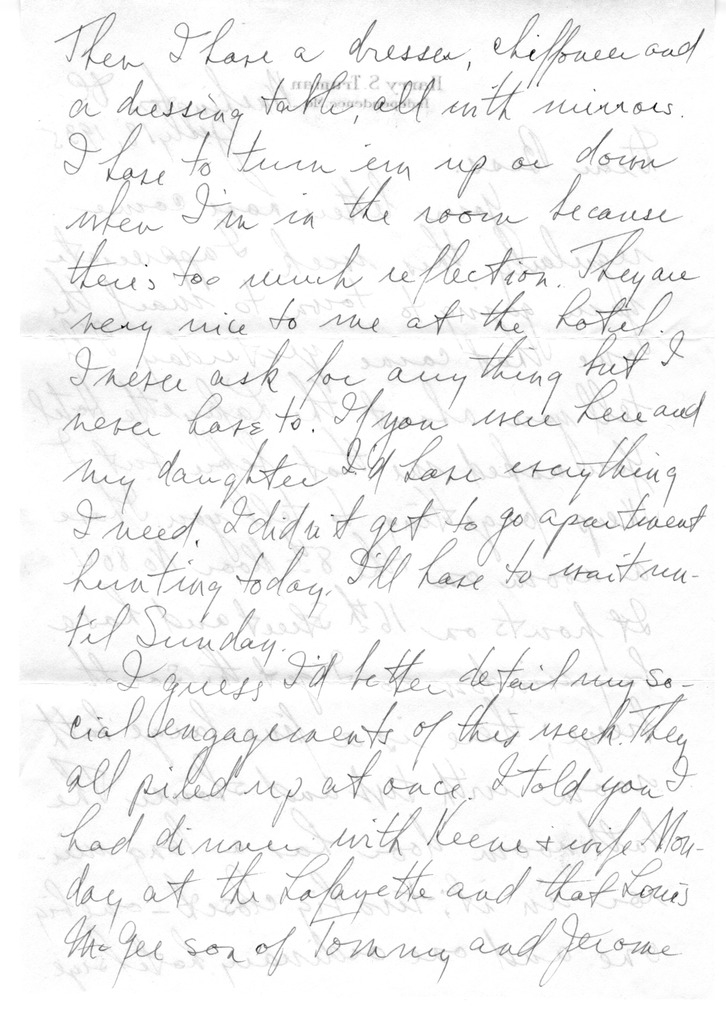 Then I have a dresser, chiffoneer and
a dressing table, all with mirrors.
I have to turn em up or down
when I'm in the room because
there's too much reflection. They are
very nice to me at the hotel.
I never ask for anything but I
never have to. If you were here and
my daughter I'd have everything
I need. I didn't get to go apartment
hunting today. I'll have to wait un-
til Sunday.
I guess I'd better detail my so-
cial engagements of this week. They
all piled up at once. I told you I
had dinner with Keene + wife Mon-
day at the Lafayette and that Louis
McGee son of Tommy and Jerome